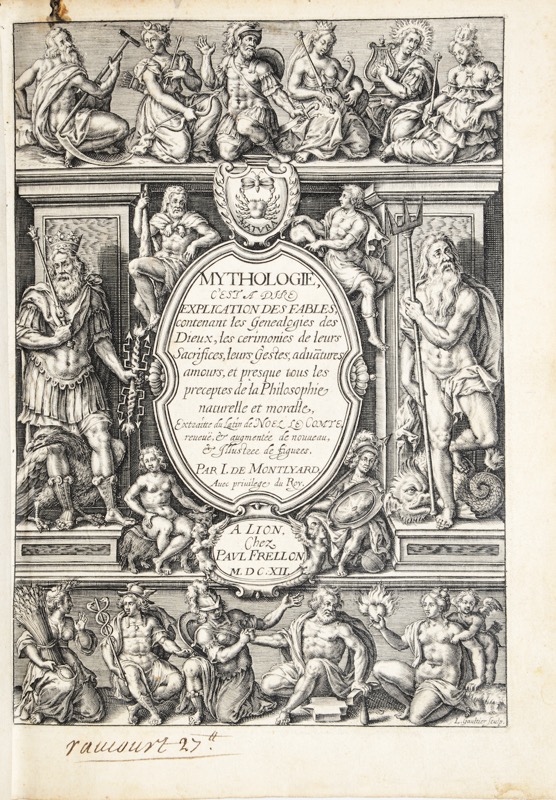 MATVRA
MYTHOLOGIE,
C'EST A DIRE
EXPLICATION DES FABLES,
contenant les Genealogies des
Dieux, les cerimonies de leurs
Sacrifices, leurs Gestes, aduātures,
amours, et presque tous les
preceptes de la Philosophie
naturelle et moralle,
Extraitte du Latin de NOEL LE COMTE,
reueuë, & augmentée de nouueau,
& Illustree de figures.
PAR I. DE MONTLYARD,
Avec privilege du Roy.
A LION,
Chez
PAVL FRELLON
M. DC. XII.
L. Gaultier sculp.
raucourt 27.tt